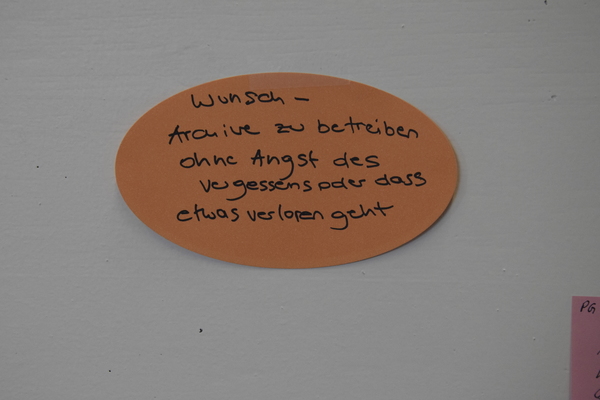 Wunsch –
Archive zu betreiben
ohne Angst des
Vergessens oder dass
etwas verloren geht
PG